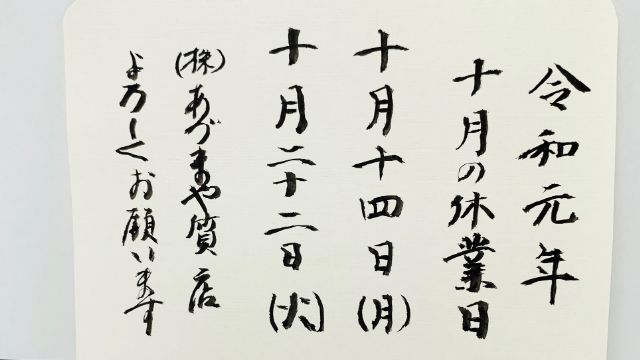 令和元年
十月の休業日
十月十四日(月)
十月二十二日(火)
(株)あづまや質店
よろしくお願いします